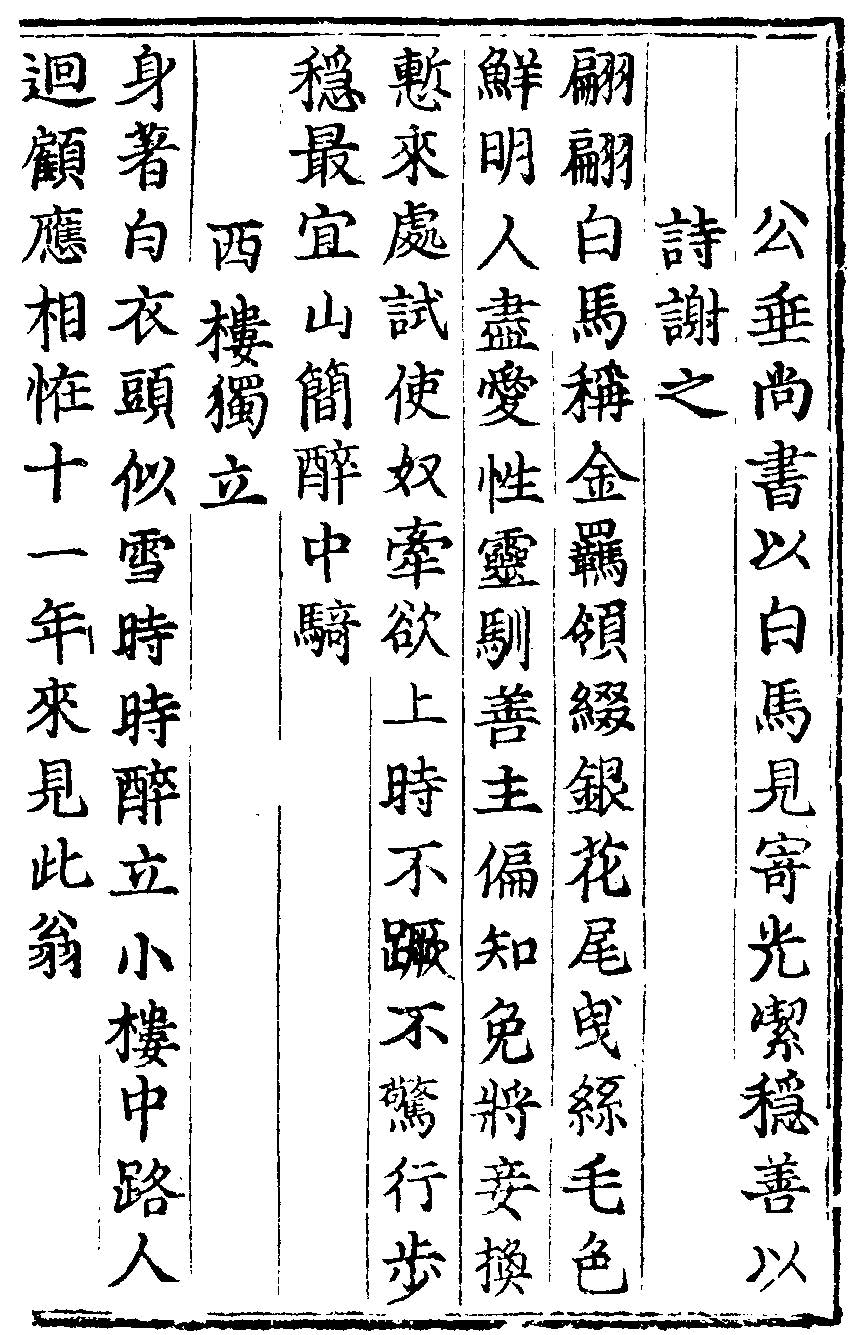 公垂尚書以白馬見寄光潔穩善以
詩謝之
翩翩白馬稱金羈領綴銀花尾曳絲毛色
鮮明人盡愛性靈馴善主偏知免將妾換
慙來處試使奴牽欲上時不蹶不驚行步
穩最宜山簡醉中騎
西樓獨立
身著白衣頭似雪時時醉立小樓中路人
迴顧應相恠十一年來見此翁